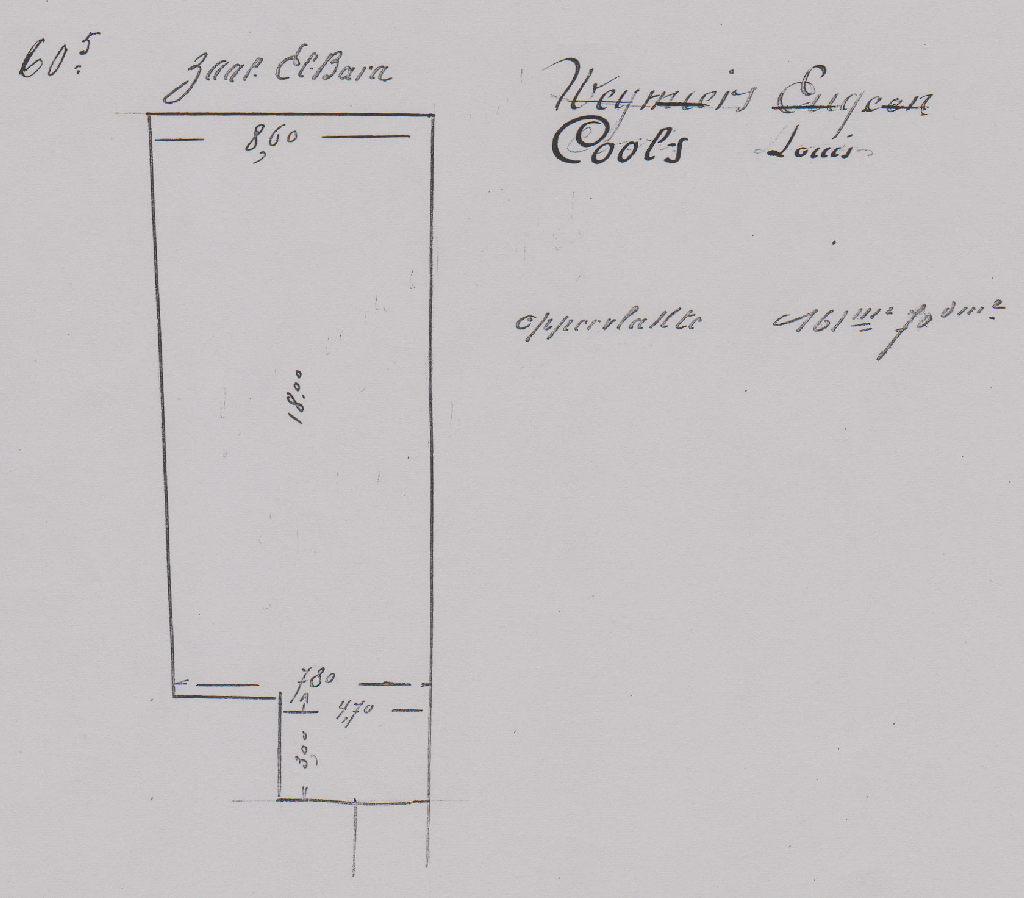 60 5
Zaal El-Bara
Weymiers Eugeen
Cools Louis
8,60
oppervlakte 161 m² 70 dm²
18,00
7,80
4,70
3,00